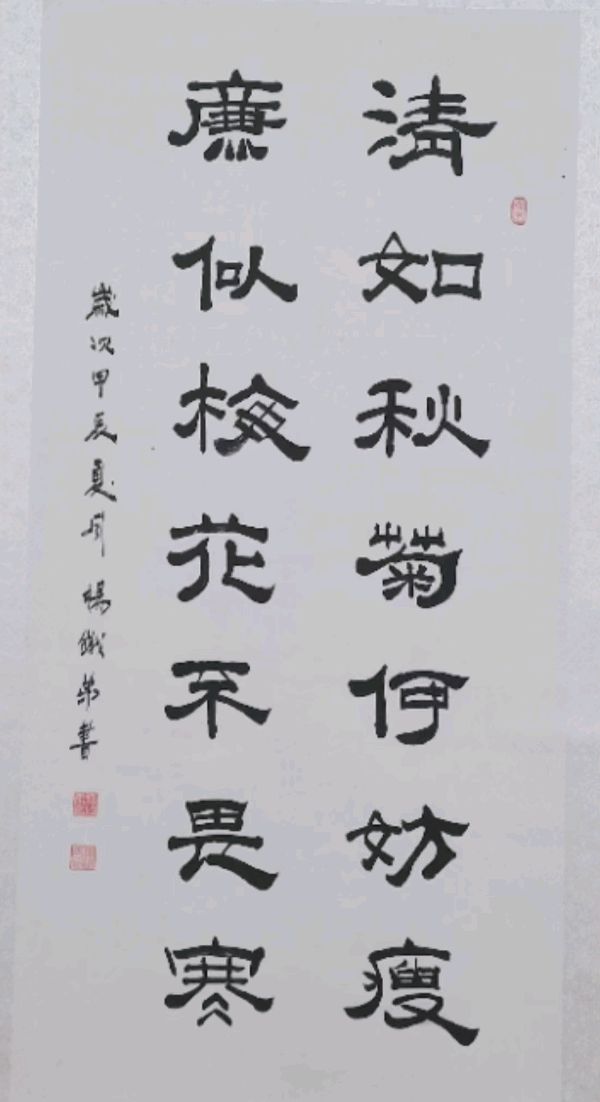 清如秋菊何妨瘦
廉似梅花不畏寒
歲次甲辰夏月楊鐵荣書